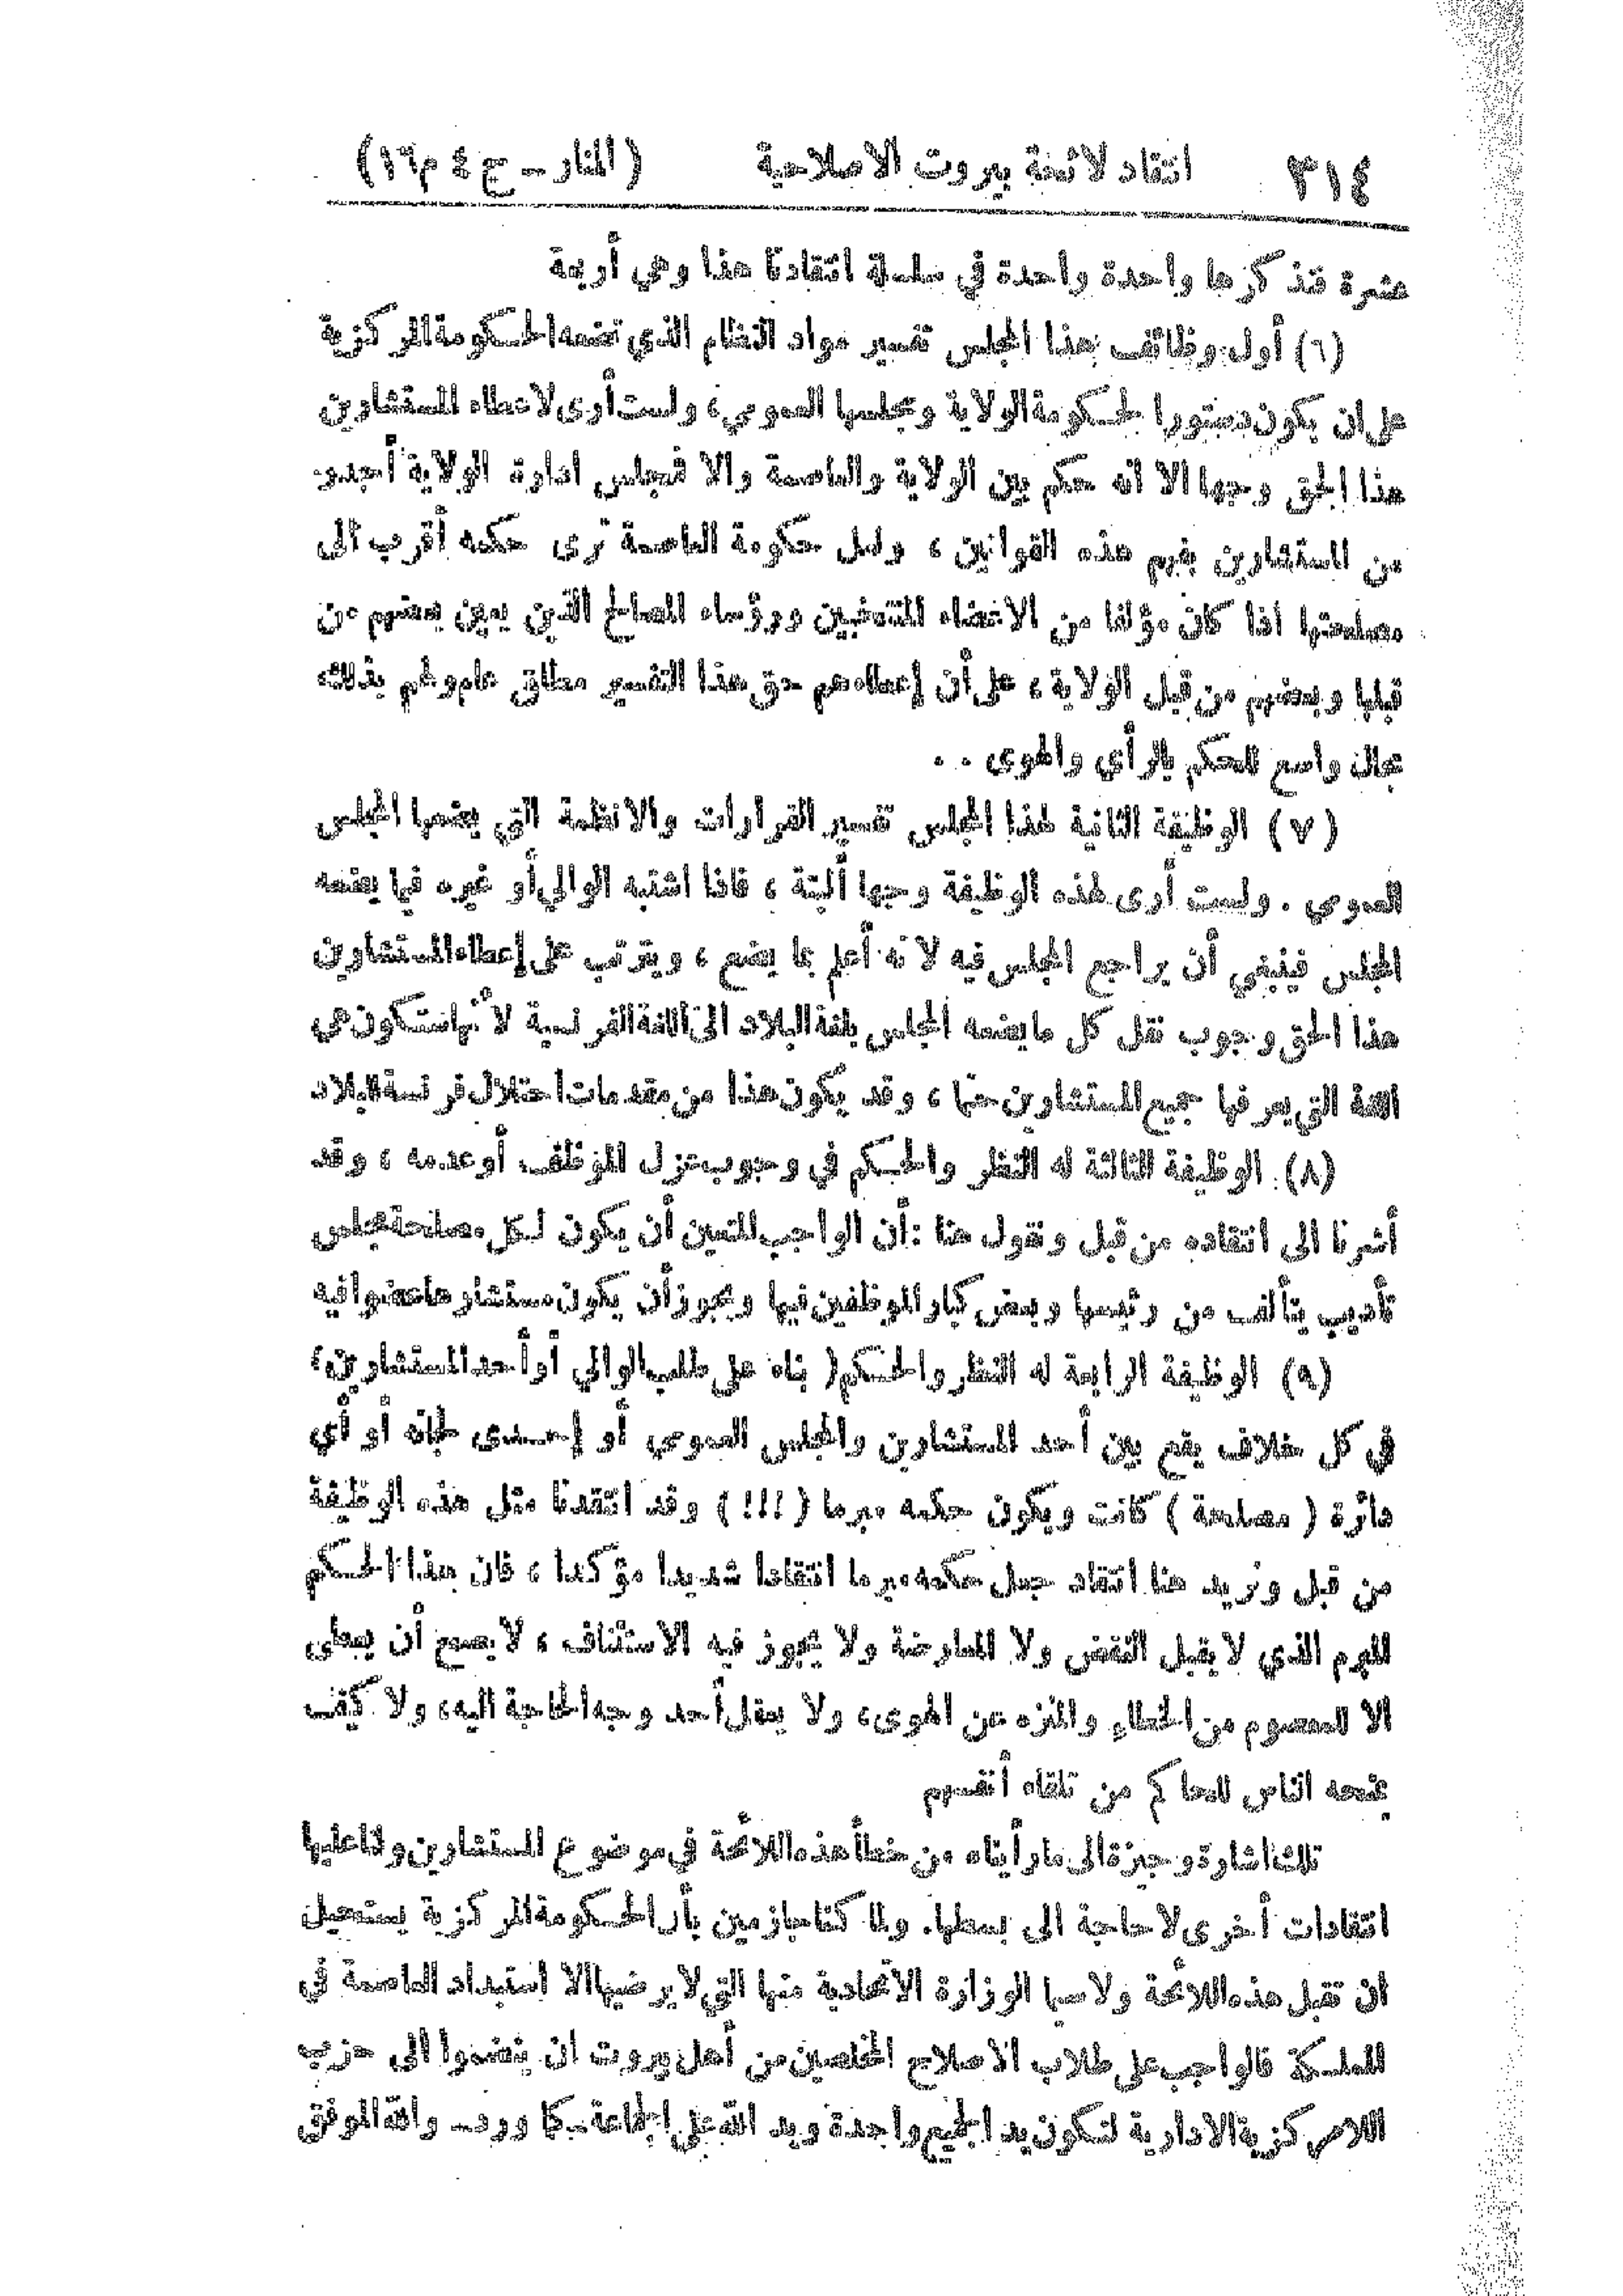 ٣١٤ انتقاد لائحة بيروت الاصلاحية (المنار ــ ج ٤ م ١٦)
عشرة فنذكرها واحدة واحدة في سلسلة انتقادنا هذا وهي أربعة
(٦) أول وظائف هذا المجلس تفسير مواد النظام الذي تضعه الحكومة المركزية
على ان يكون دستورا لحكومة الولاية ومجلسها العمومي، ولست أرى لاعطاء المستشارين
هذا الحق وجها الا انه حكم بين الولاية والعاصمة والا فمجلس ادارة الولاية أجدر
من المستشارين بفهم هذه القوانين ، ولعل حكومة العاصمة ترى حكمه أقرب الى
مصلحتها اذا كان مؤلفا من الاعضاء المنتخبين ورؤساء المصالح الذين يعين بعضهم من
قبلها وبعضهم من قبل الولاية ، على أن إعطاءهم حق هذا التفسير مطلق عام ولهم بذلك
مجال واسع للحكم بالرأي والهوى . .
(٧) الوظيفة الثانية لهذا المجلس تفسير القرارات والانظمة التي يضعها المجلس
العمومي . ولست أرى لهذه الوظيفة وجها ألبتة ، فاذا اشتبه الوالي أو غيره فيما يضعه
المجلس فينبغي أن يراجع المجلس فيه لانه أعلم بما يضع ، ويترتب على إعطاء المستشارين
هذا الحق وجوب نقل كل ما يضعه المجلس بلغة البلاد الى اللغة الفرنسية لأنها ستكون هي
اللغة التي يعرفها جميع المستشارين حتما ، وقد يكون هذا من مقدمات احتلال فرنسة البلاد
(٨) الوظيفة الثالثة له النظر والحكم في وجوب عزل الموظف أو عدمه ، وقد
أشرنا الى انتقاده من قبل ونقول هنا : أن الواجب المتعين أن يكون لكل مصلحة مجلس
تأديب يتألف من رئيسها وبعض كبار الموظفين فيها ويجوز أن يكون مستشارها عضوا فيه
(٩) الوظيفة الرابعة له النظر والحكم (بناء على طلب الوالي أو أحد المستشارين)
في كل خلاف يقع بين أحد المستشارين والمجلس العمومي أو إحدى لجانه أو أي
دائرة ( مصلحة ) كانت ويكون حكمه مبرما (!!!) وقد انتقدنا مثل هذه الوظيفة
من قبل ونزيد هنا انتقاد جعل حكمه مبرما انتقادا شديدا مؤكدا ، فان هذا الحكم
المبرم الذي لا يقبل النقض ولا المعارضة ولا يجوز فيه الاستئناف ، لا يصح أن يعطى
الا للمعصوم من الخطاء والمنزه عن الهوى، ولا يعقل أحد وجه الحاجة اليه، ولا كيف
يمنحه اناس للحاكم من تلقاء أنفسهم
تلك اشارة وجيزة الى ما رأيناه من خطأ هذه اللائحة في موضوع المستشارين ولنا عليها
انتقادات أخرى لا حاجة الى بسطها. ولما كنا جازمين بأن الحكومة المركزية يستحيل
ان تقبل هذه اللائحة ولا سيما الوزارة الاتحادية منها التي لا يرضيها الا استبداد العاصمة في
المملكة فالواجب على طلاب الاصلاح المخلصين من أهل بيروت ان ينضموا الى حزب
اللامركزية الادارية لتكون يد الجميع واحدة ويد الله على الجماعة ــ كما ورد ــ والله الموفق